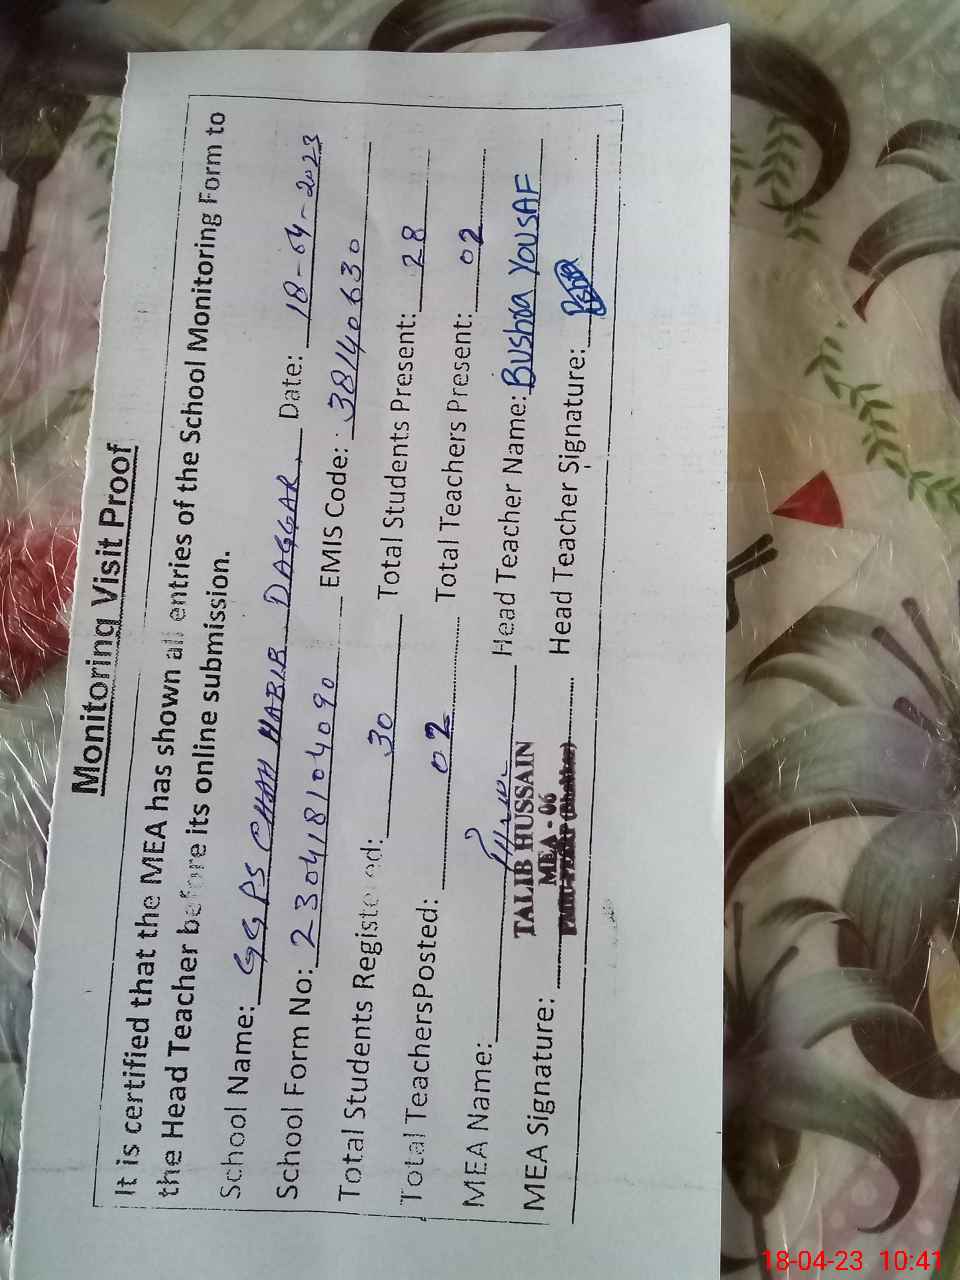 Monitoring Visit Proof
It is certified that the MEA has shown all entries of the School Monitoring Form to
the Head Teacher before its online submission.
School Name: GGPS CHAH HABIB DAGGAR. Date: 18-04-2023
School Form No: 230418104090 EMIS Code: 38140630
Total Students Registered: 30 Total Students Present: 28
Total TeachersPosted: 02 Total Teachers Present: 02
MEA Name: Head Teacher Name: BUShRA YOUSAF
TALIB HUSSAIN
MEA - 06
MEA Signature: Head Teacher Signature:
18-04-23 10:41